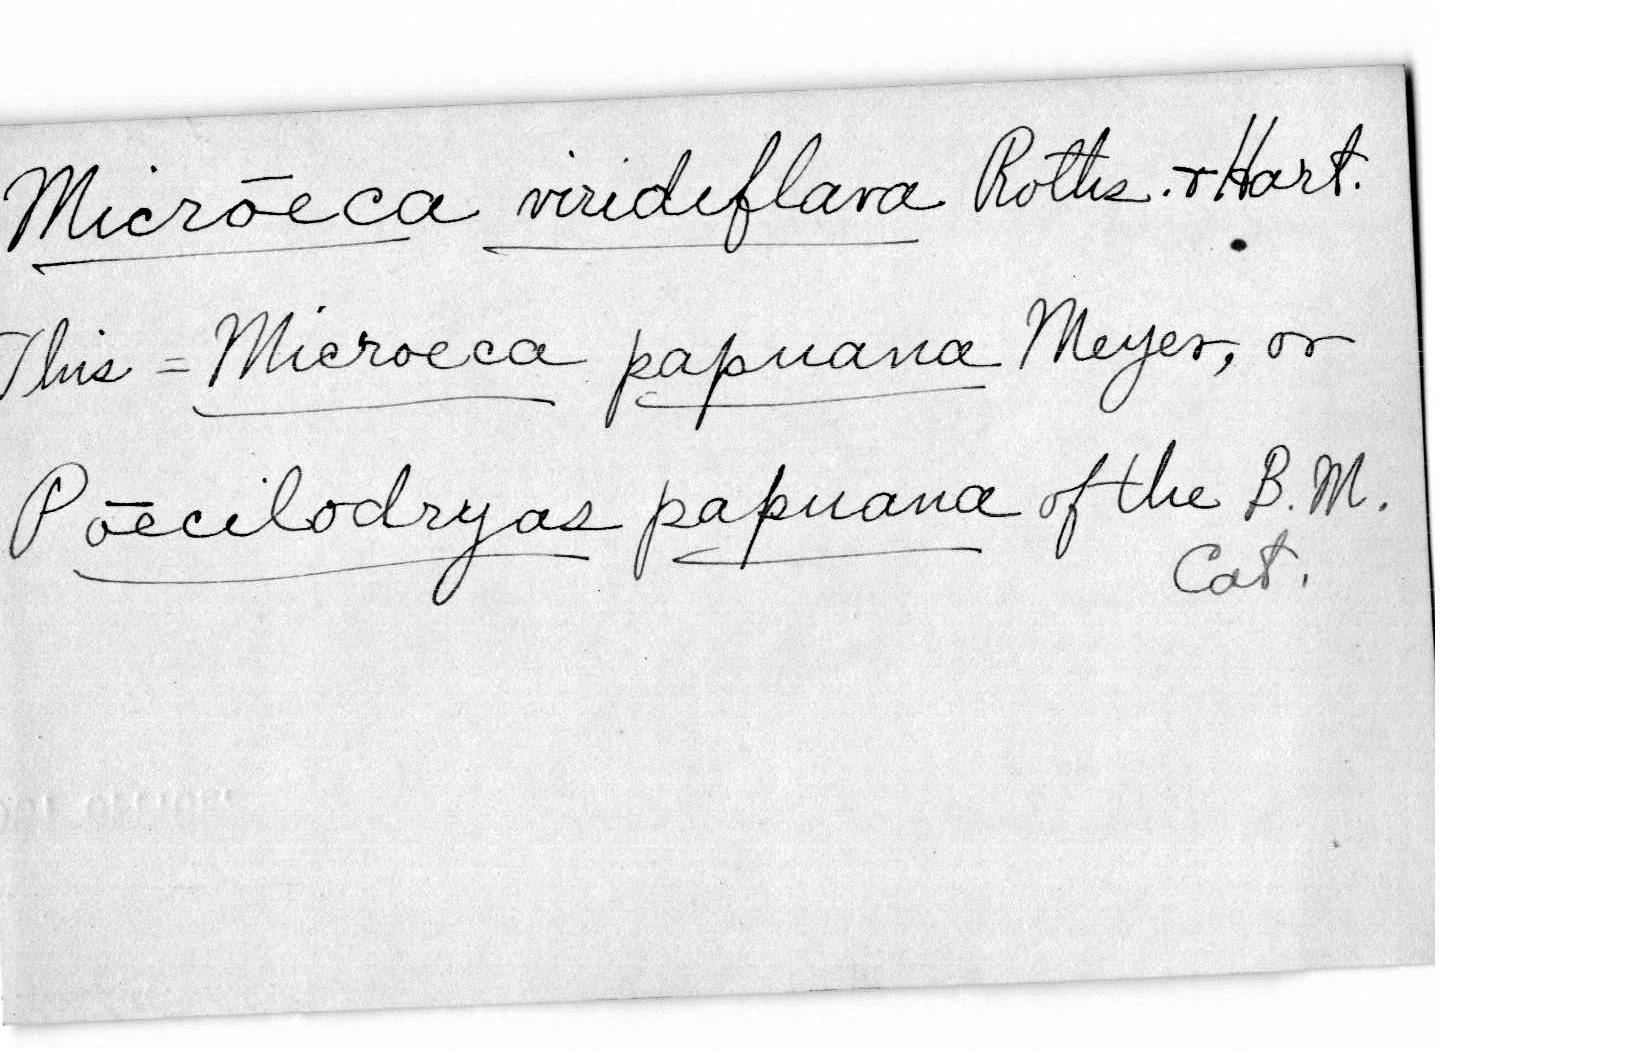 Micrōeca viridiflava Roths. & Hart.
This = Microeca papuana Meyer, or
Pōecilodryas papuana of the B. M.
Cat.